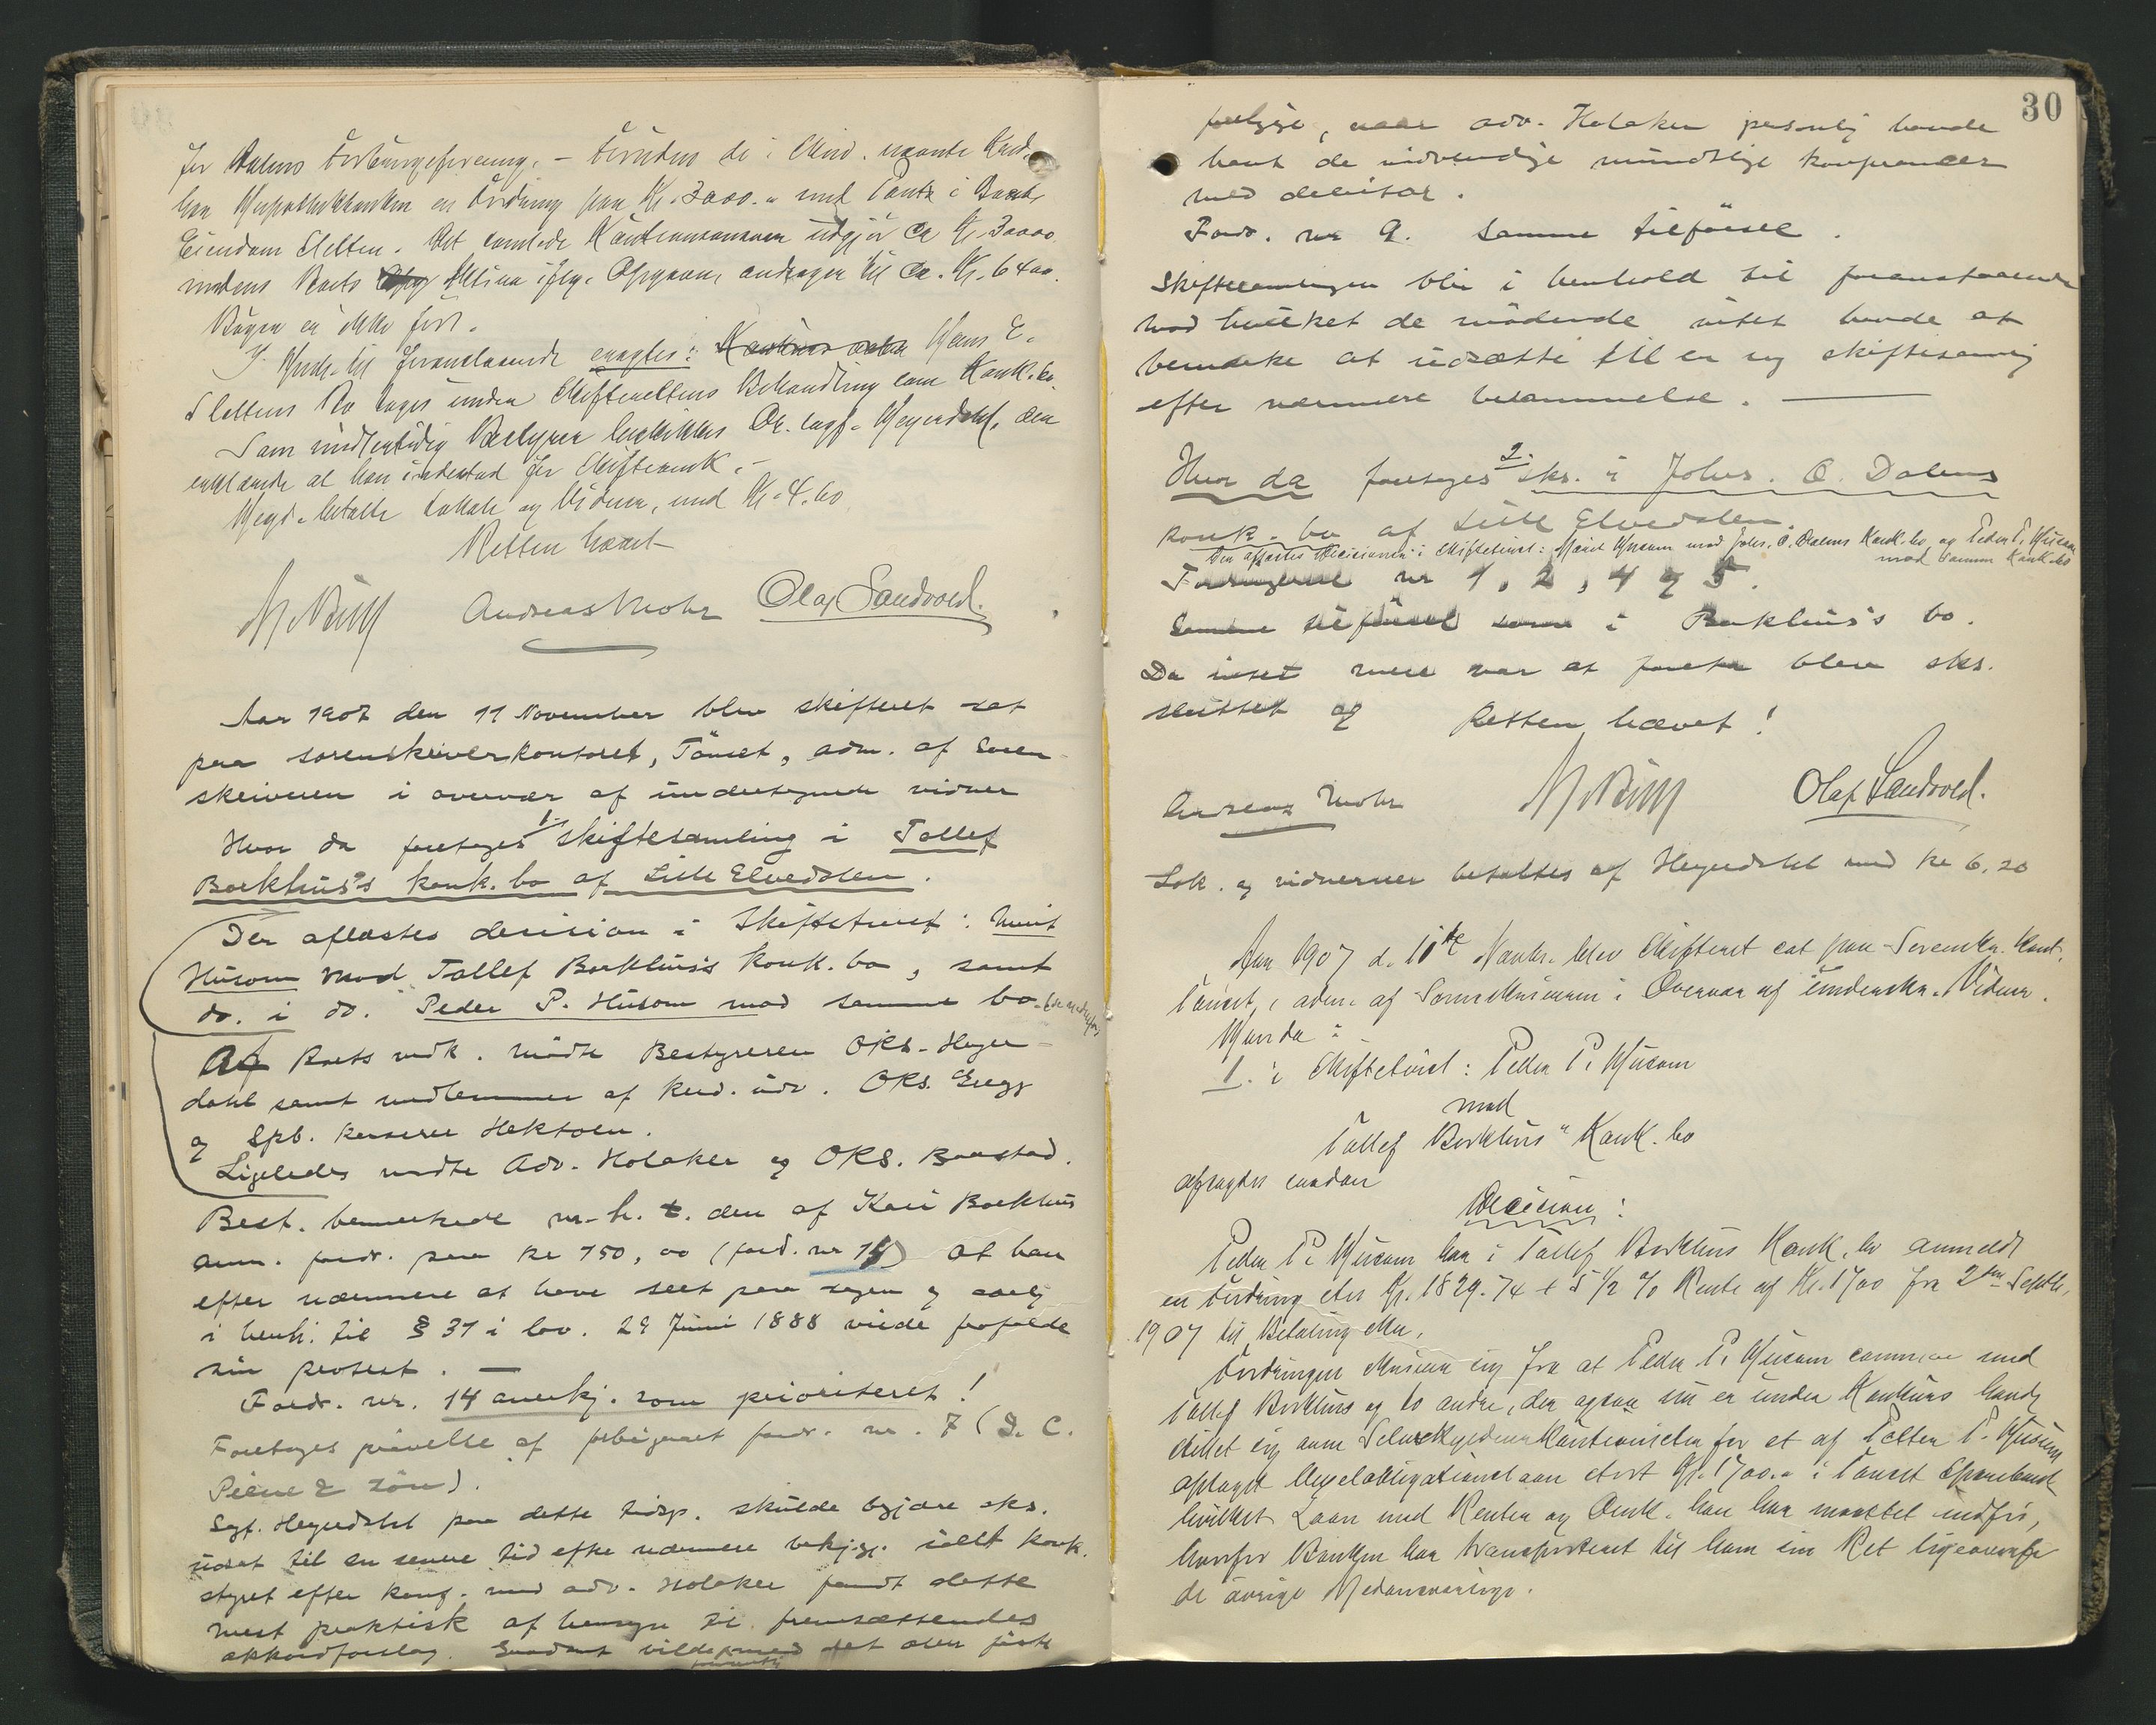 for Dalens Forbrugsforening. – Foruden de i Mind. nævnte Kred.
har Hypothekbanken en Fordring paa Kr. 3000.- med Pant i Boets
Eiendom Sletten. Det samlede Kautionsansvar udgjør ca Kr. 30000
medens Boets Aktiva iflg. Opgaven andrager til ca. Kr. 6400.
Bøger er ikke ført.
I Henh. til foranstaaende eragtes: Hans E.
Slettens Bo tages under Skifterettens Behandling som Konk.bo.
Som midlertidig Bestyrer beskikkes Or. sagf. Heyerdahl, den
erklærede at han indestod for Skifteomk. –
Heyd. betalte Lokale og Vidner, med Kr. 4.60.
Retten hævet
Andreas Mohr Olaf Sandvold.
Aar 1907 den 11 November blev skifteret sat
paa sorenskriverkontoret, Tönset, adm. af Soren-
skriveren i overvær af undertegnede vidner
Hvor da foretoges 1. skiftesamling i Tollef
Bækhus's konk.bo af Lille Elvedalen.
Der aflæstes decision i Skiftetvist: Marit
Husom mod Tollef Bækhus's konk.bo, samt
do. i do. Peder P. Husom mod samme bo.
Af Boets vedk. mödte Bestyreren ORS. Heyer-
dahl samt medlemmer af kred.udv. ORS. Gregg
og Spb. kasserer Hektoen.
Ligeledes mödte Adv. Holaker og ORS. Baastad.
Best. bemerkede m.h.t. den af Kari Bækhus
anm. fordr. paa kr 750,00 (ford. nr 14) at han
efter nærmere at have seet paa sagen og
i henh. til § 31 i lov. 29 Juni 1888 vilde frafalde
sin protest. —
Fordr. nr. 14 anerkj. som prioriteret!
Foretoges prövelse af forbigaaet fordr. nr. 7 (I. C.
Piene & sön).
Sagf. Heyerdahl paa dette tidsp. skulde begjære sks.
udsat til en senere tid efter nærmere bekjg. idet konk.
styret efter konf. med adv. Holaker fandt dette
mest praktisk af hensyn til fremsættendes
akkordforslag. Saadant vilde med det aller förste
30
foreligge, naar adv. Holaker personlig havde
havt de nödvendige mundtlige konferancer
med debitor.
Fordr. nr 9. Samme tilförsel.
Skiftesamlingen blir i henhold til foranstaaende
mod hvilket de mödende intet havde at
bemerke at udsætte til en ny skiftesamling
efter nærmere berammelse. —
Hvor da foretoges 2. sks. i Johs. O. Dalens
konk.bo af Lille Elvedalen.
Der aflæstes Decisioner i Skiftetvist: Marit Husom mod Johs. O. Dalens Konk.bo og Peder P. Husom
mod samme Konk.bo
Fordringerne nr 1, 2, 4 og 5.
Samme tilförsel som i Bækhus's bo.
Da intet mere var at foreta blev sks.
sluttet og Retten hævet!
Andreas Mohr Olaf Sandvold.
Lok. og vidnerner betaltes af Heyerdahl med kr 6,20
Aar 1907 d. 11te Novbr. blev Skifteret sat paa Sorenskr. Kont.
Tönset, adm. af Sorenskriveren i Overvær af underskr. Vidner.
Hvor da:
1. i Skiftetvist: Peder P. Husom
mod
Tollef Bækhus' Konk.bo
afsagdes saadan
Decision:
Peder P. Husom har i Tollef Bækhus Konk.bo anmeldt
en Fordring stor Kr. 1829.74 + 5 1/2 % Rente af Kr. 1700 fra 2den Septbr.
1907 til Betaling sker.
Fordringen skriver sig fra at Peder P. Husom sammen med
Tollef Bækhus og to andre, der ogsaa nu er under Konkurs havde
stillet sig som Selvskyldnerkautionister for et af Petter P. Husom
optaget Vexelobligationslaan stort Kr. 1700.- i Tönset Sparebank
hvilket Laan med Renter og Omk. han har maattet indfri,
hvorfor Banken har transporteret til ham sin Ret ligeoverfor
de övrige Medansvarlige.